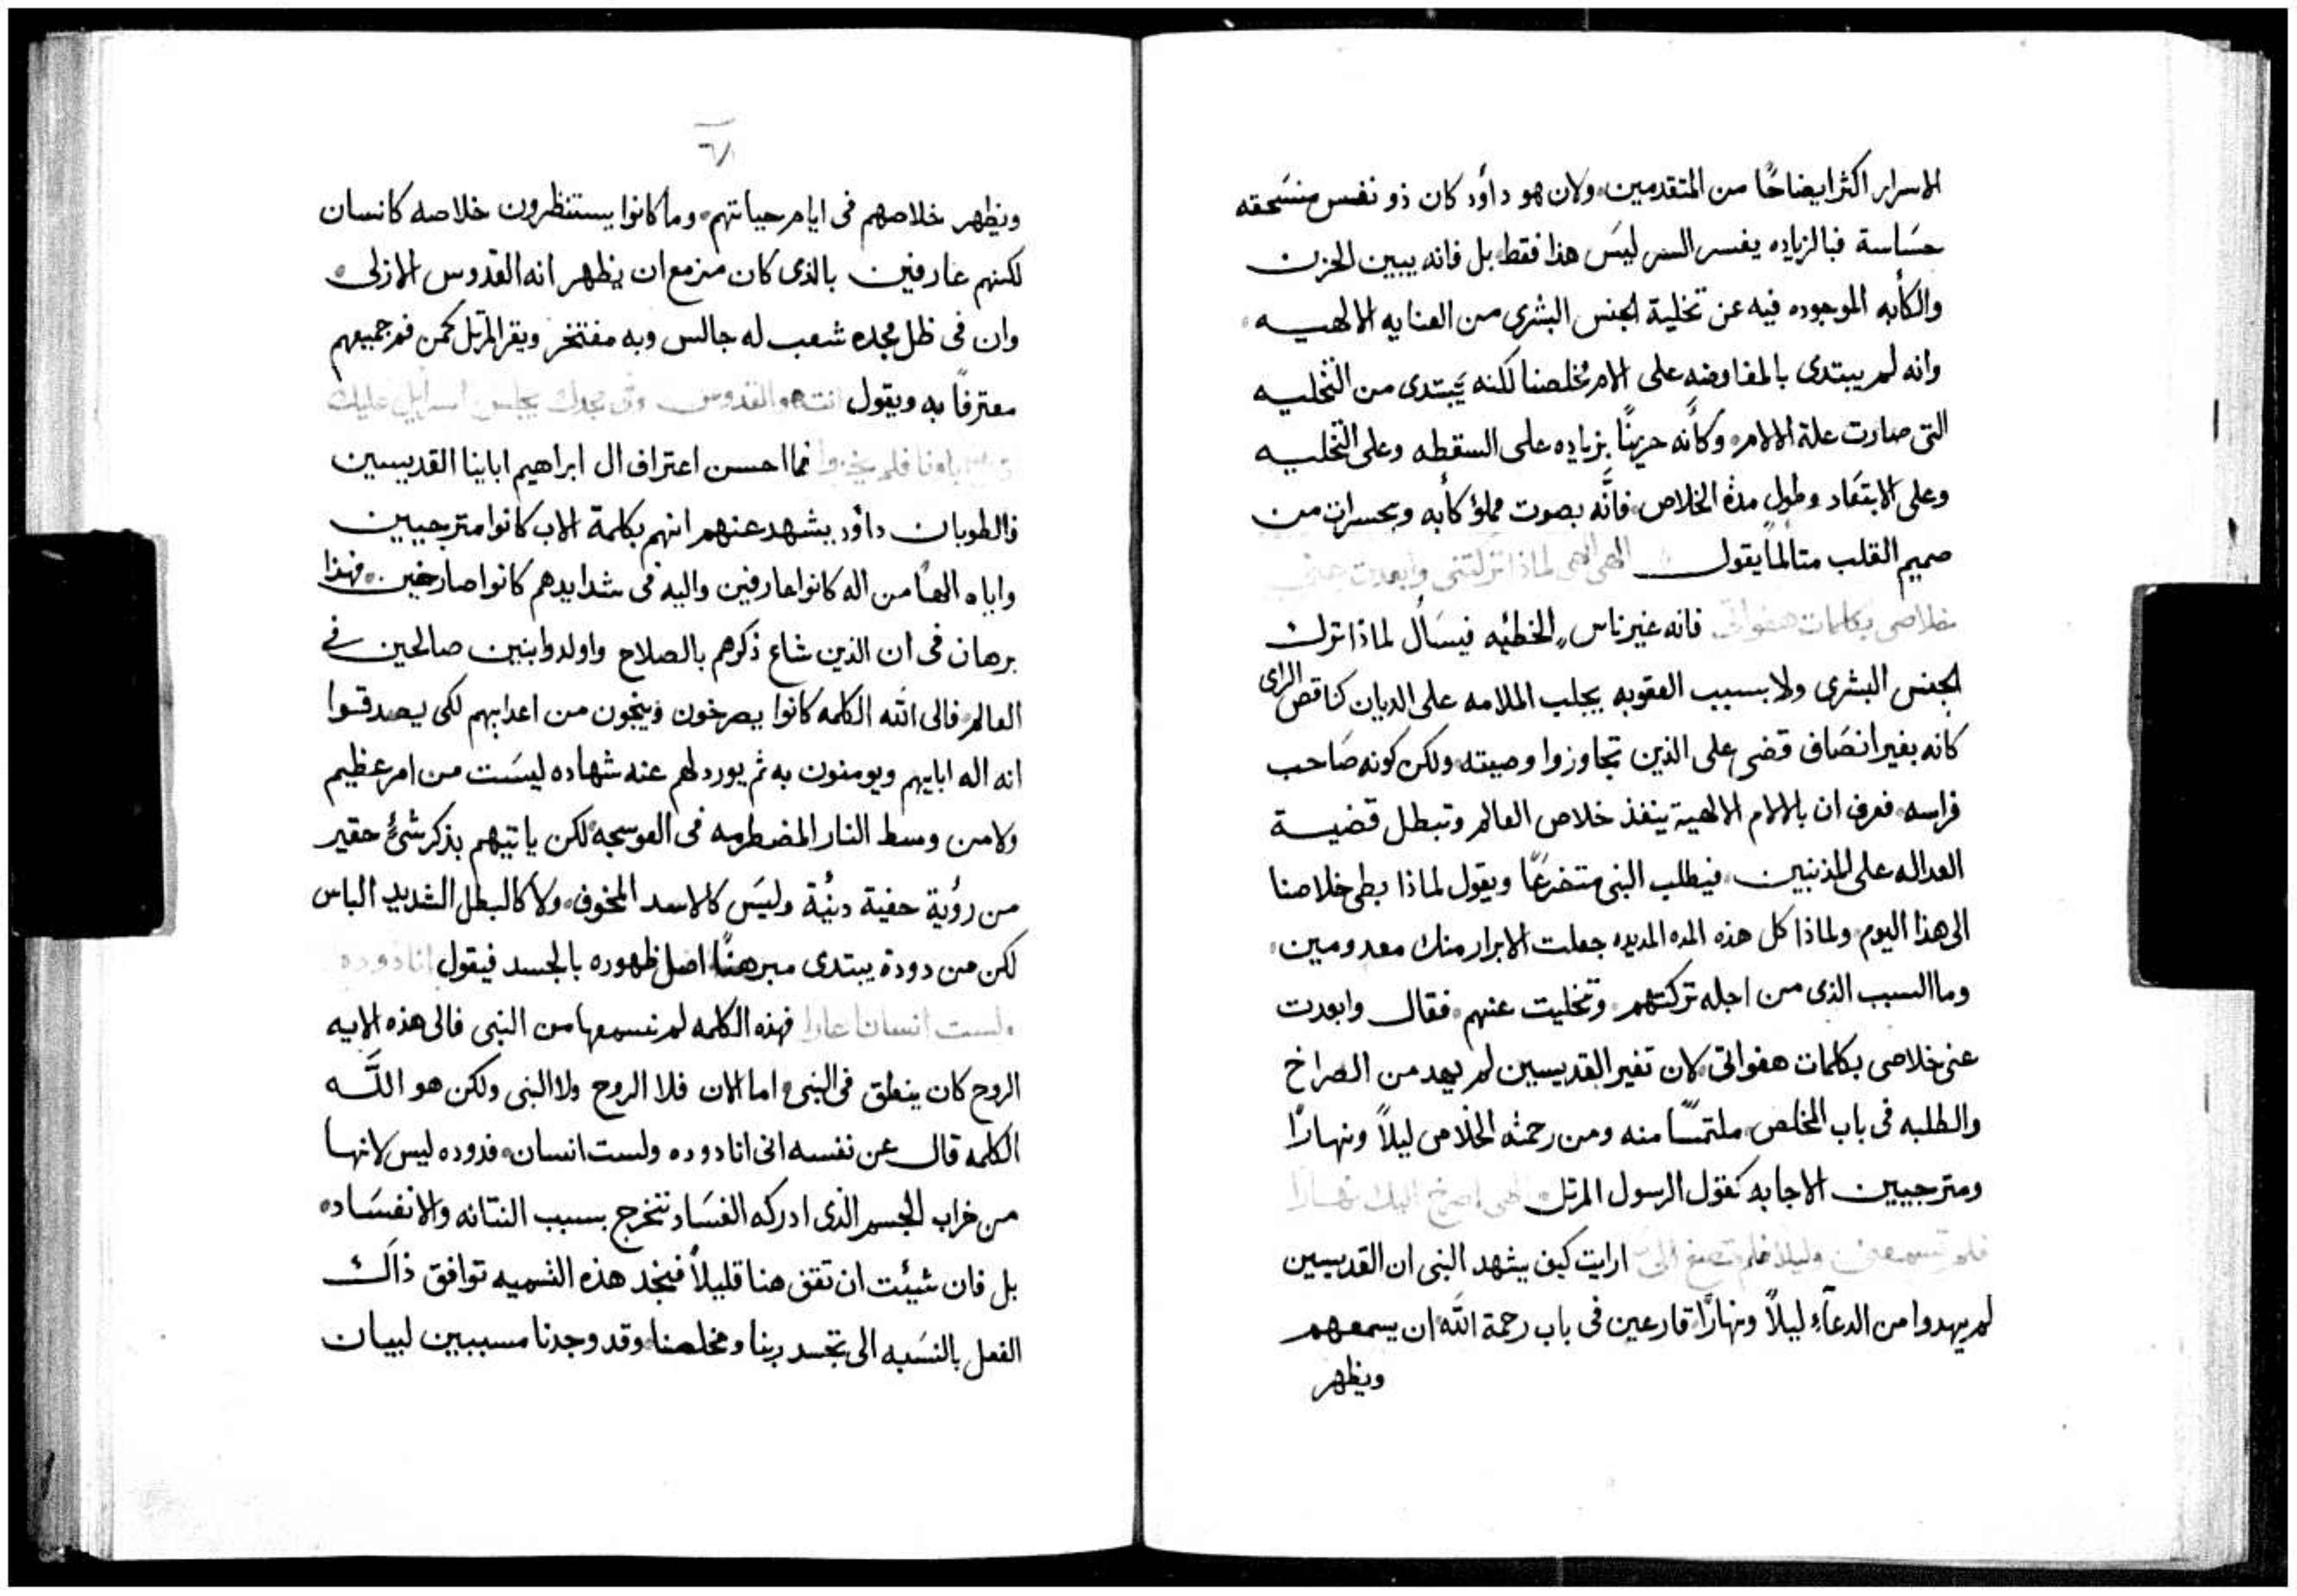 الاسرار اكثر ايضاحًا من المتقدمين، ولان هو داود كان ذو نفس منسحقه
حسَاسة فبالزياده يفسر السر ليسَ هذا فقط، بل فانه يبين الحزن
والكأبه الموجوده فيه عن تخلية الجنس البشرى من العنايه الالهيه
وانه لم يبتدى بالمفاوضه على الام مخلصنا لكنه يبتدى من التخليه
التى صارت علة الالام، وكأنه حزينًا بزياده على السقطه وعلى التخليه
وعلى الابتعَاد وطول مدة الخلاص، فانَّه بصوت مملؤ كأبه وبحسرات من
صميم القلب متالمًا يقول الهى الهى لماذا تركتنى وابعدت عنى
خلاصى بكلمات هفواتى فانه غير ناسٍ الخطيّه فيسَأل لماذا ترك
الجنس البشرى ولا بسبب العقوبه يجلب الملامه على الديان كناقص الراى
كانه بغير انصَاف قضى على الذين تجاوزوا وصيته، ولكن كونه صَاحب
فراسه، فعرف ان بالالام الالهية ينفذ خلاص العالم وتبطل قضية
العداله على المذنبين، فيطلب النبى متضرعًا ويقول لماذا بطى خلاصنا
الى هذا اليوم، ولماذا كل هذه المده المديده جعلت الابرار منك معدومين،
وما السبب الذى من اجله تركتهم، وتخليت عنهم، فقال وابعدت
عنى خلاصى بكلمات هفواتى، لان تغير القديسين لم يهد من الصراخ
والطلبه فى باب المخلص، ملتمسًا منه ومن رحمته الخلاص ليلًا ونهارًا
ومترجيين الاجابه كقول الرسول المرتل، الهى اصرخ اليك نهارًا
فلم تسمعنى وليلا فلم تصغ الىّ ارايت كيف يشهد النبى ان القديسين
لم يهدوا من الدعآءِ ليلًا ونهارًا، قارعين فى باب رحمة الله ان يسمعهم
ويظهر
ويظهر خلاصهم فى ايام حياتهم، وما كانوا يستنظرون خلاصه كانسان
لكنهم عارفين بالذى كان مزمع ان يظهر انه القدوس الازلى،
وان فى ظل مجده شعب له جالس وبه مفتخر ويقر المرتل كمن فم جميعهم
معترفًا به ويقول انت هو القدوس وفى مجدك يجلس اسرايل عليك
اباونا فلم يخزوا فما احسن اعتراف ال ابراهيم اباينا القديسين
فالطوبان داود يشهد عنهم انهم بكلمة الاب كانوا مترجيين
واياه الهًا من اله كانوا عارفين واليه فى شدايدهم كانوا صارخين، فهذا
برهان فى ان الذين شاع ذكرهم بالصلاح واولدوا بنين صالحين فى
العالم، فالى الله الكلمه كانوا يصرخون وينجون من اعدايهم لكى يصدقوا
انه اله ابايهم ويومنون به ثم يورد لهم عنه شهاده ليسَت من امر عظيم
ولا من وسط النار المضطرمه فى العوسجه، لكن ياتيهم بذكر شئٍ حقير
من رؤية حفية دنيّة وليسَ كالاسد المخوف، ولا كالبطل الشديد الباس
لكن من دودة يبتدى مبرهنًا اصل ظهوره بالجسد فيقول انا دوده
ولست انسانا عارا فهذه الكلمه لم نسمعها من النبى فالى هذه الايه
الروح كان ينطق فى النبى، اما الان فلا الروح ولا النبى ولكن هو اللَّه
الكلمه قال عن نفسه انى انا دوده ولست انسان، فدوده ليس لانها
من خراب الجسم الذى ادركه الفسَاد تخرج بسبب النتانه والانفسَاد،
بل فان شيئت ان تقف هنا قليلًا فنجد هذه التسميه توافق ذاك
الفعل بالنسَبه الى تجسد ربنا ومخلصنا، وقد وجدنا مسببين لبيان